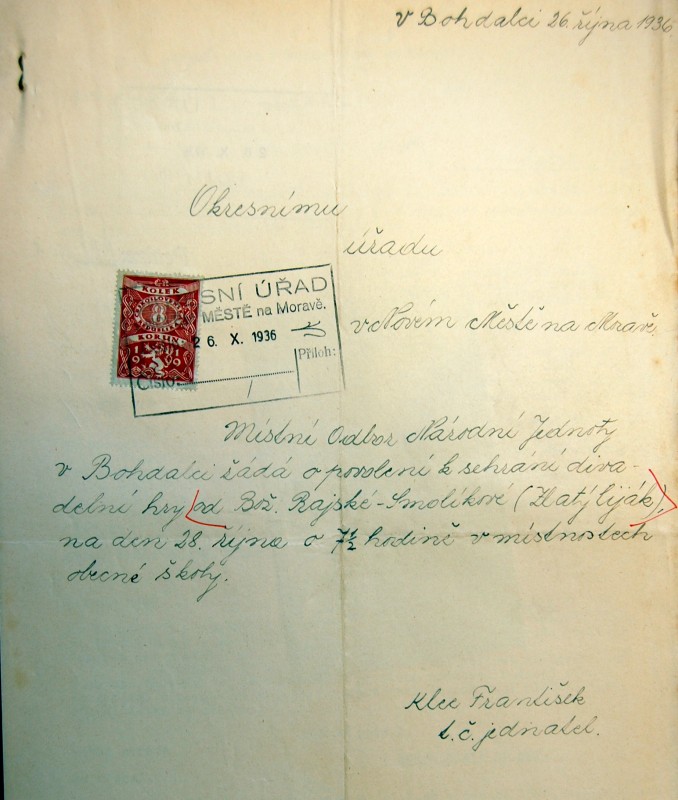 v Bohdalci 26. října 1936
Okresnímu
úřadu
v Novém Městě na Mravě.
KOLEK
8
KORUN
1919
SNÍ ÚŘAD
MĚSTĚ na Moravě.
26. X. 1936
Příloh:
Číslo:
Místní Odbor Národní Jednoty
v Bohdalci žádá o povolení k sehrání diva-
delní hry od Bož. Rajské-Smolíkové (Zlatý liják),
na den 28. října o 7½ hodině v místnostech
obecné školy.
Klec František
t.č. jednatel.